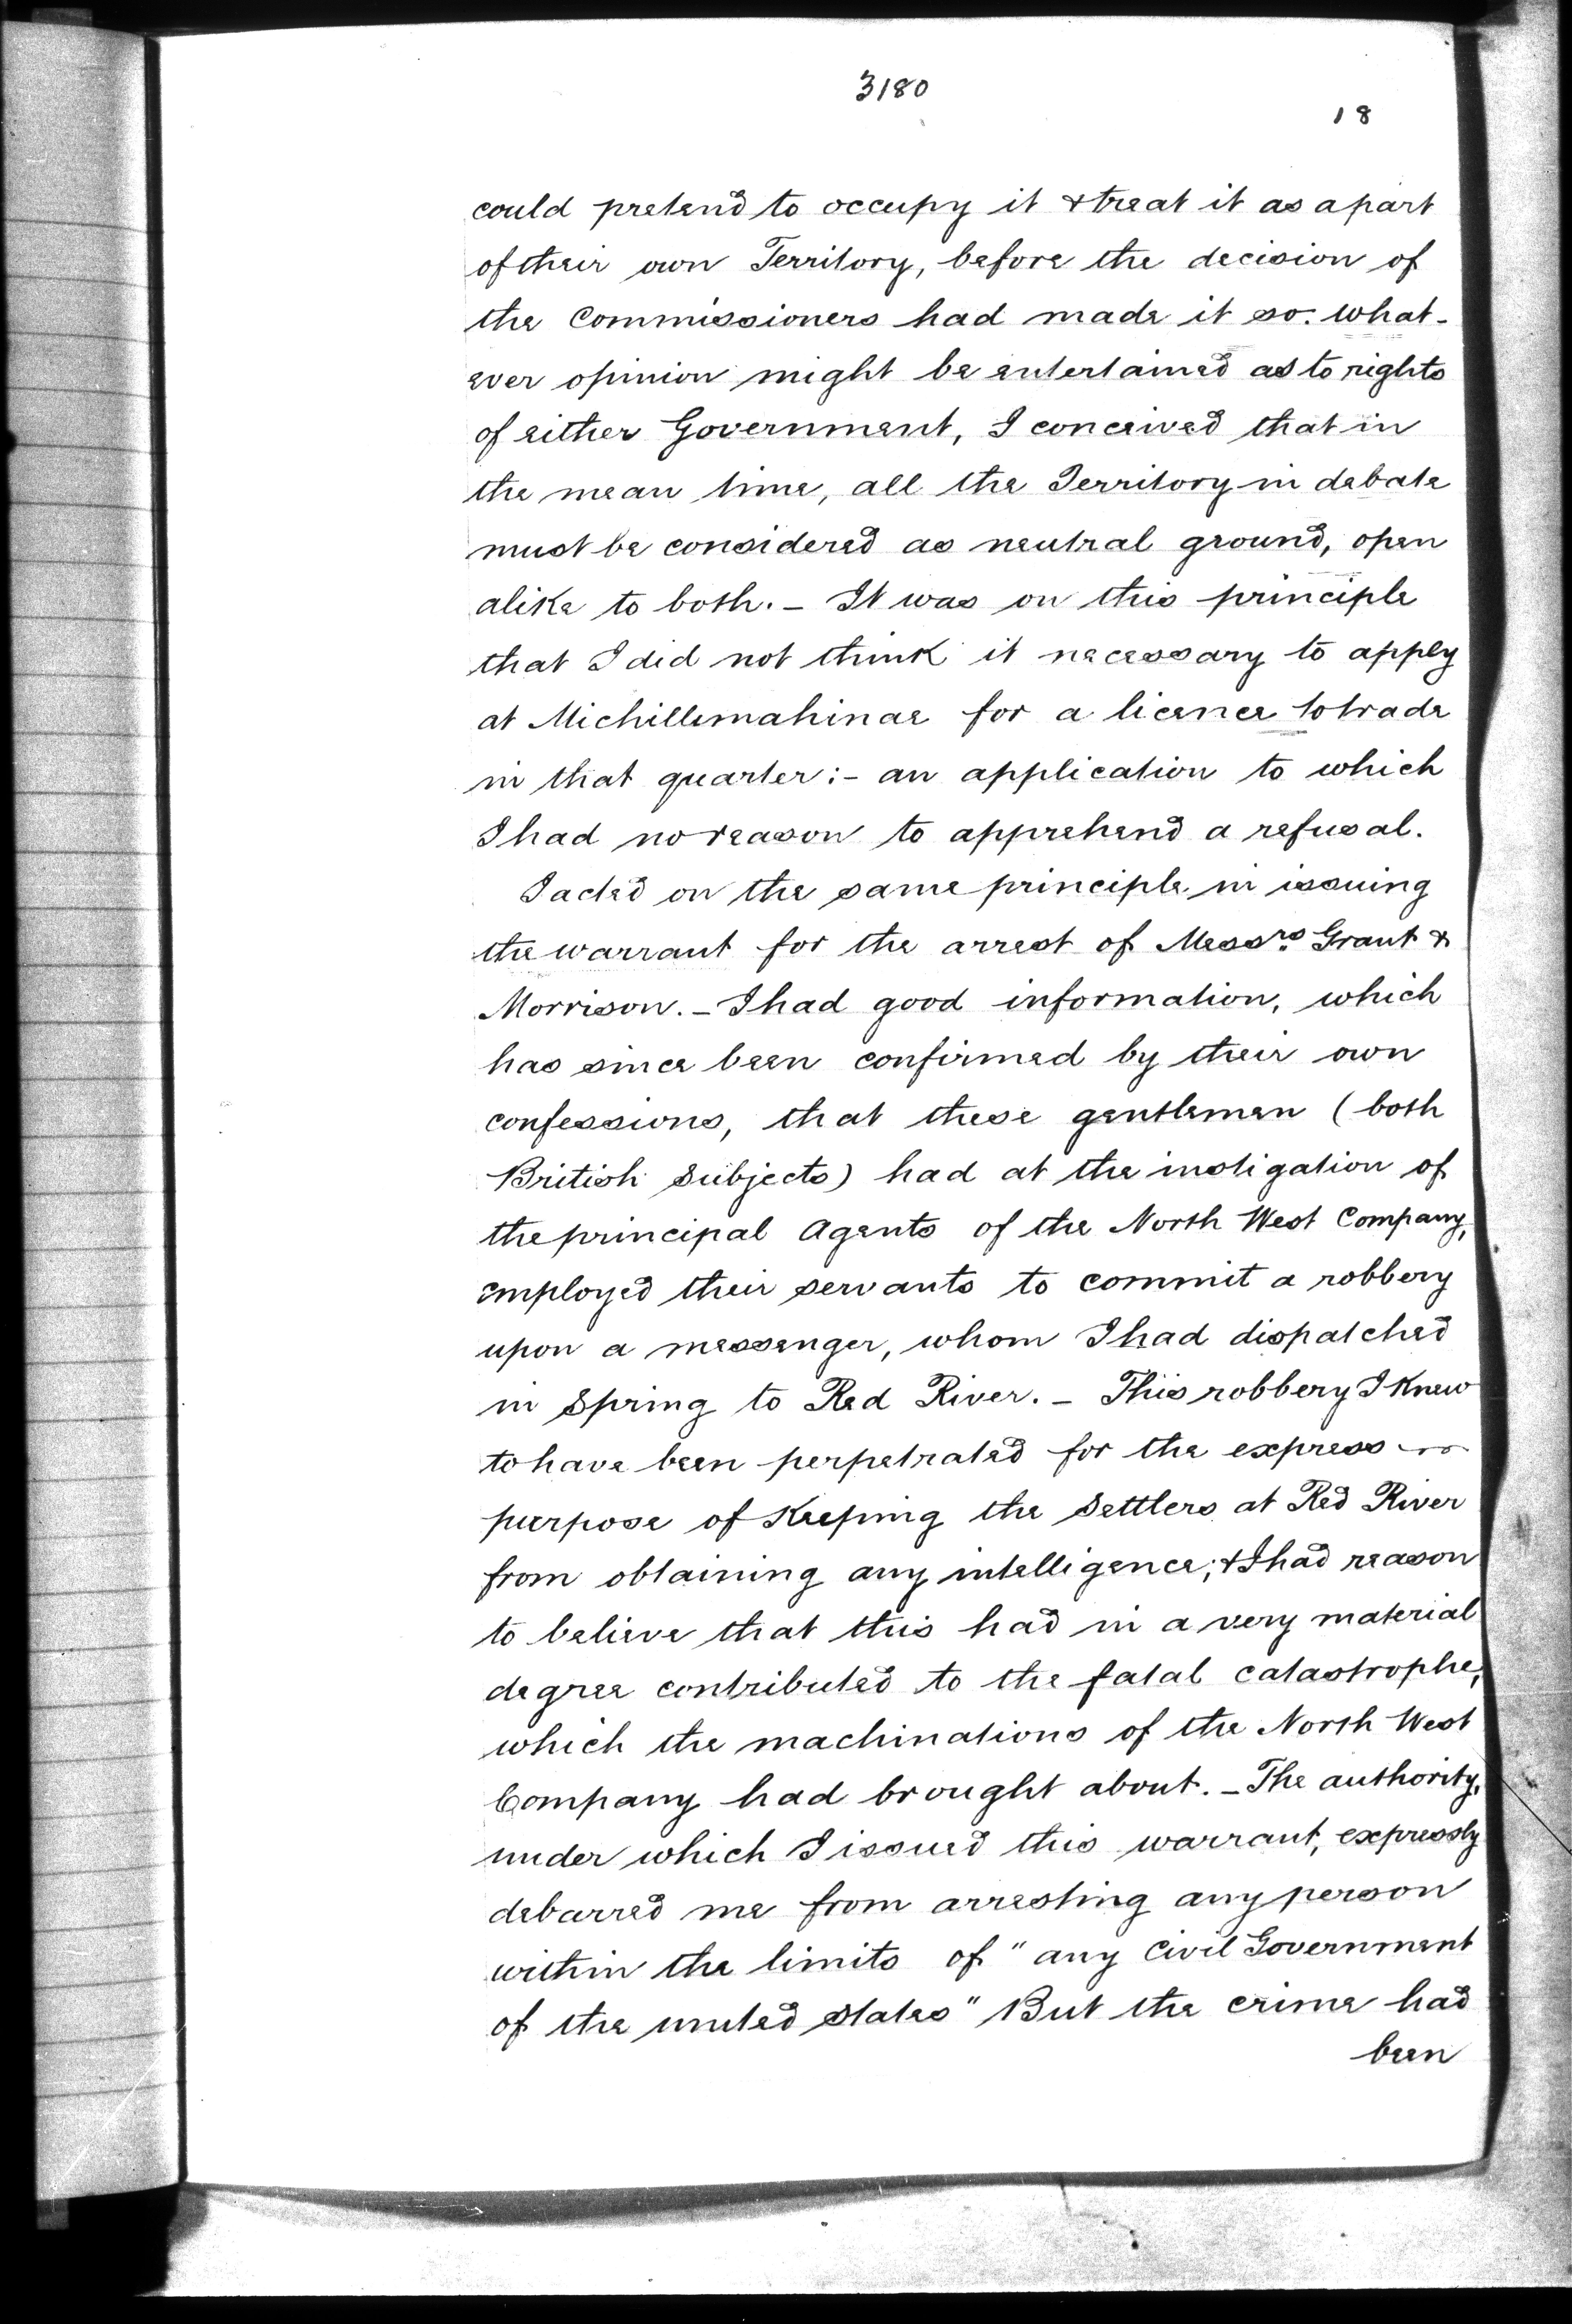 3180
18
could pretend to occupy it & treat it as a part
of their own Territory, before the decision of
the Commissioners had made it so. what-
ever opinion might be entertained as to rights
of either Government, I conceived that in
the mean time, all the Territory in debate
must be considered as neutral ground, open
alike to both. - It was on this principle
that I did not think it necessary to apply
at Michillimahinae for a licence to trade
in that quarter :- an application to which
I had no reason to apprehend a refusal.
I acted on the same principle in issuing
the warrant for the arrest of Messrs Grant &
Morrison. - I had good information, which
has since been confirmed by their own
confessions, that these gentlemen (both
British Subjects) had at the instigation of
the principal Agents of the North West Company,
employed their servants to commit a robbery
upon a messenger, whom I had dispatched
in Spring to Red River. - This robbery I knew
to have been perpetrated for the express
purpose of keeping the Settlers at Red River
from obtaining any intelligence; & I had reason
to believe that this had in a very material
degree contributed to the fatal catastrophe,
which the machinations of the North West
Company had brought about. - The authority,
under which I issued this warrant, expressly
debarred me from arresting any person
within the limits of "any Civil Government
of the united states" But the crime had
been